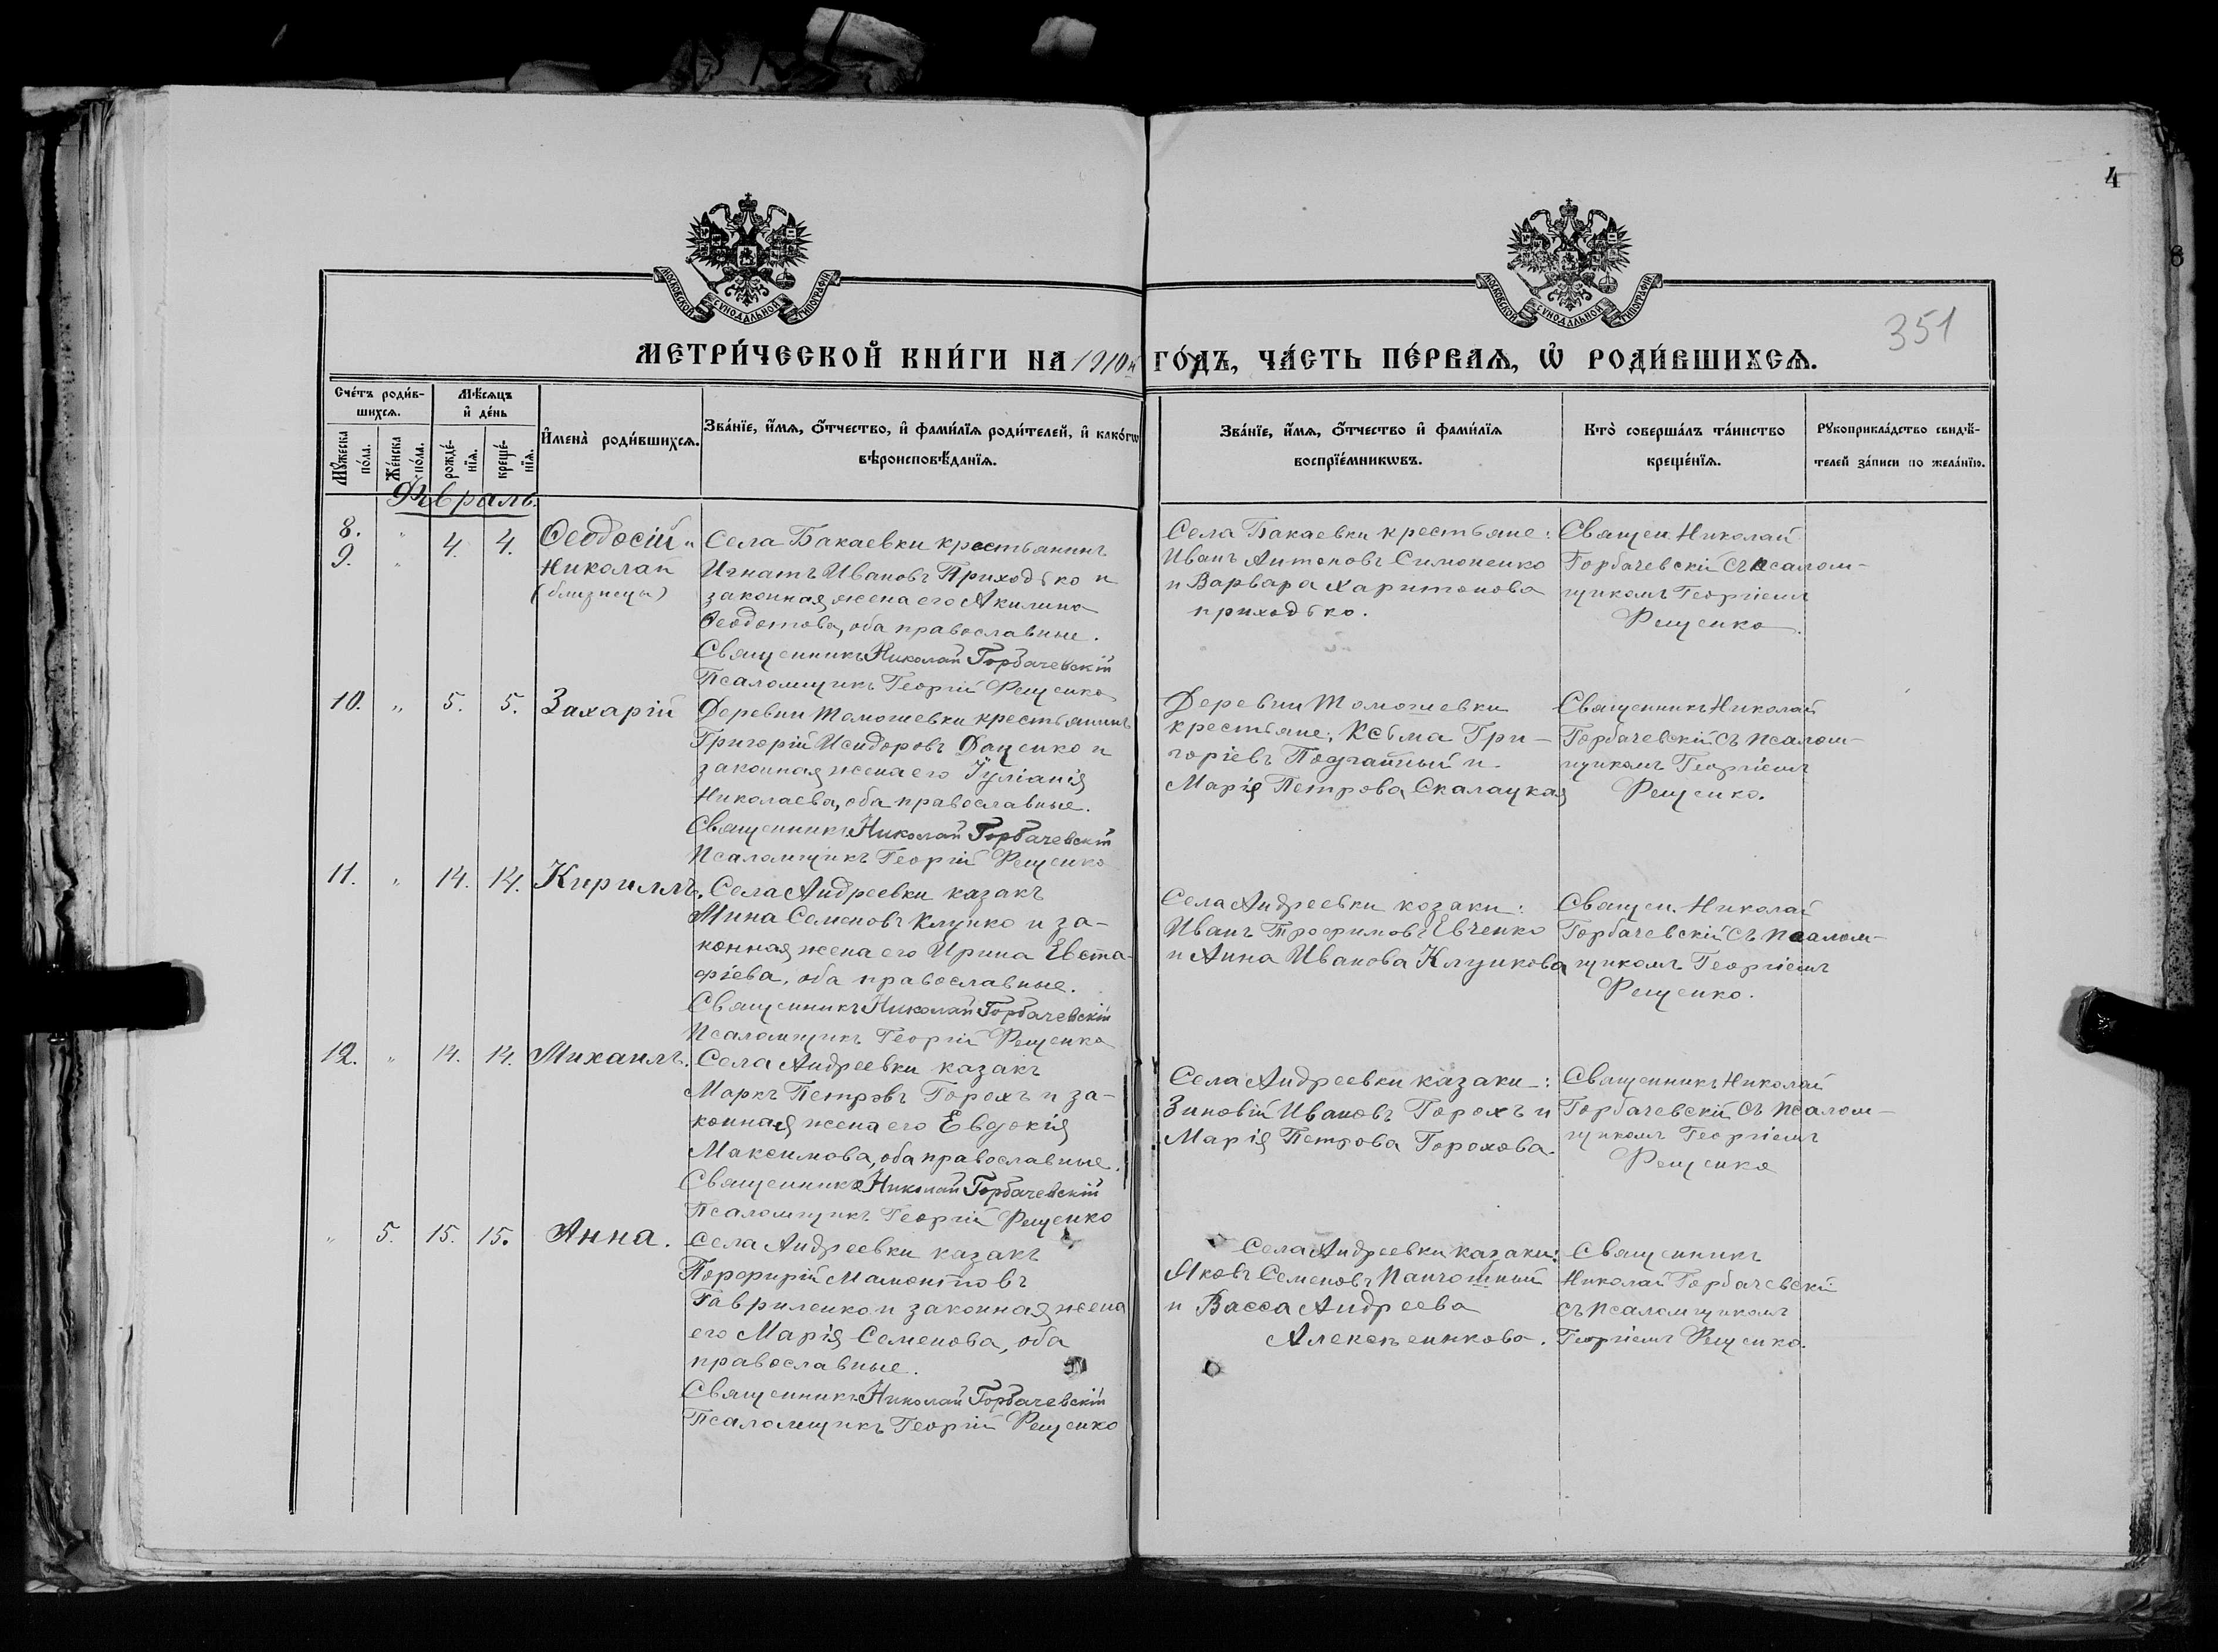 4
8
351
МОСКОВСКОЙ СѴНОДАЛЬНОЙ ТИПОГРАФІИ
МОСКОВСКОЙ СѴНОДАЛЬНОЙ ТИПОГРАФІИ
МЕТРИ́ЧЕСКОЙ КНИ́ГИ НА 1910й ГО́ДЪ, ЧА́СТЬ ПЕ́РВАѦ, Ѽ РОДИ́ВШИХСѦ.
Сче́тъ роди́в-
шихсѧ.
Мꙋжеска по́ла.
Же́нска по́ла.
Мѣ́сѧцъ
и҆ де́нь
рожде́-
нїѧ.
креще́-
нїѧ.
И҆мена̀ роди́вшихсѧ.
Зва́нїе, и҆́мѧ, ѻ҆́тчество, и҆ фами́лїѧ роди́телей, и҆ како́гѡ
вѣроисповѣ́данїѧ.
Зва́нїе, и҆́мѧ, ѻ҆́тчество и҆ фами́лїѧ
воспрїе́мникѡвъ.
Кто̀ соверша́лъ та́инство
креще́нїѧ.
Рꙋкоприкла́дство свидѣ́-
телей за́писи по жела́нїю.
Февраль.
8. " 4. 4. Ѳеодосій и
9. "
Николай
(близнецы)
Села Бакаевки крестьянинъ
Игнатъ Ивановъ Приходько и
законная жена его Акилина
Ѳеодотова, оба православные.
Священникъ Николай Горбачевскій
Псаломщикъ Георгій Рещенко
Села Бакаевки крестьяне:
Иванъ Антоновъ Симоненко
и Варвара Харитонова
приходько.
Священ. Николай
Горбачевскій съ псалом-
щикомъ Георгіемъ
Рещенко.
10. " 5. 5. Захарій
Деревни Томошевки крестьянинъ
Григорій Исидоровъ Даценко и
законная жена его Іуліанія
Николаева, оба православные.
Священникъ Николай Горбачевскій
Псаломщикъ Георгій Рещенко
Деревни Томошевки
крестьяне: Косьма Гри-
горіевъ и
Марія Петрова Скалацкая
Священникъ Николай
Горбачевскій съ псалом-
щикомъ Георгіемъ
Рещенко.
11. " 14. 14. Кириллъ.
Села Андреевки казакъ
Мина Семеновъ Клунко и за-
конная жена его Ирина Евста-
фіева, оба православные.
Священникъ Николай Горбачевскій
Псаломщикъ Георгій Рещенко
Села Андреевки козаки:
Иванъ Трофимовъ Евченко
и Анна Иванова Клункова
Священ. Николай
Горбачевскій съ псалом-
щикомъ Георгіемъ
Рещенко.
12. " 14. 14. Михаилъ.
Села Андреевки казакъ
Маркъ Петровъ Горохъ и за-
конная жена его Евдокія
Максимова, оба православные.
Священникъ Николай Горбачевскій
Псаломщикъ Георгій Рещенко
Села Андреевки казаки:
Зиновій Ивановъ Горохъ и
Марія Петрова Горохова.
Священникъ Николай
Горбачевскій съ псалом-
щикомъ Георгіемъ
Рещенко
" 5. 15. 15. Анна.
Села Андреевки казакъ
Порфирій Мамонтовъ
Гавриленко и законная жена
его Марія Семенова, оба
православные.
Священникъ Николай Горбачевскій
Псаломщикъ Георгій Рещенко
Села Андреевки казаки:
Яковъ Семеновъ Панчошный
и Васса Андреева
Алексѣенкова.
Священникъ
Николай Горбачевскій
съ псаломщикомъ
Георгіемъ Рещенко.